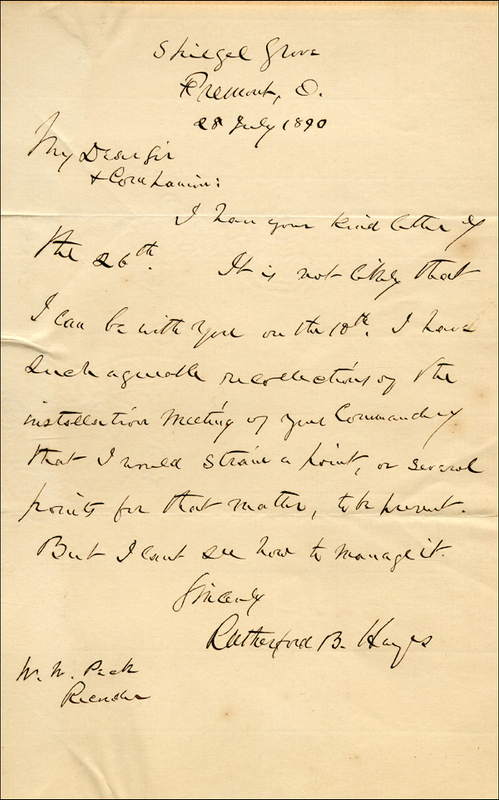 Spiegel Grove
Fremont, O.
28 July 1890
My Dear Sir
& Companion:
I have your kind letter of
the 26th. It is not likely that
I can be with you on the 10th. I have
such agreeable recollections of the
installation meeting of your Commandery
that I would strain a point, or several
points for that matter, to be present.
But I can't see how to manage it.
Sincerely
Rutherford B. Hayes
W. W. Peck
Recorder